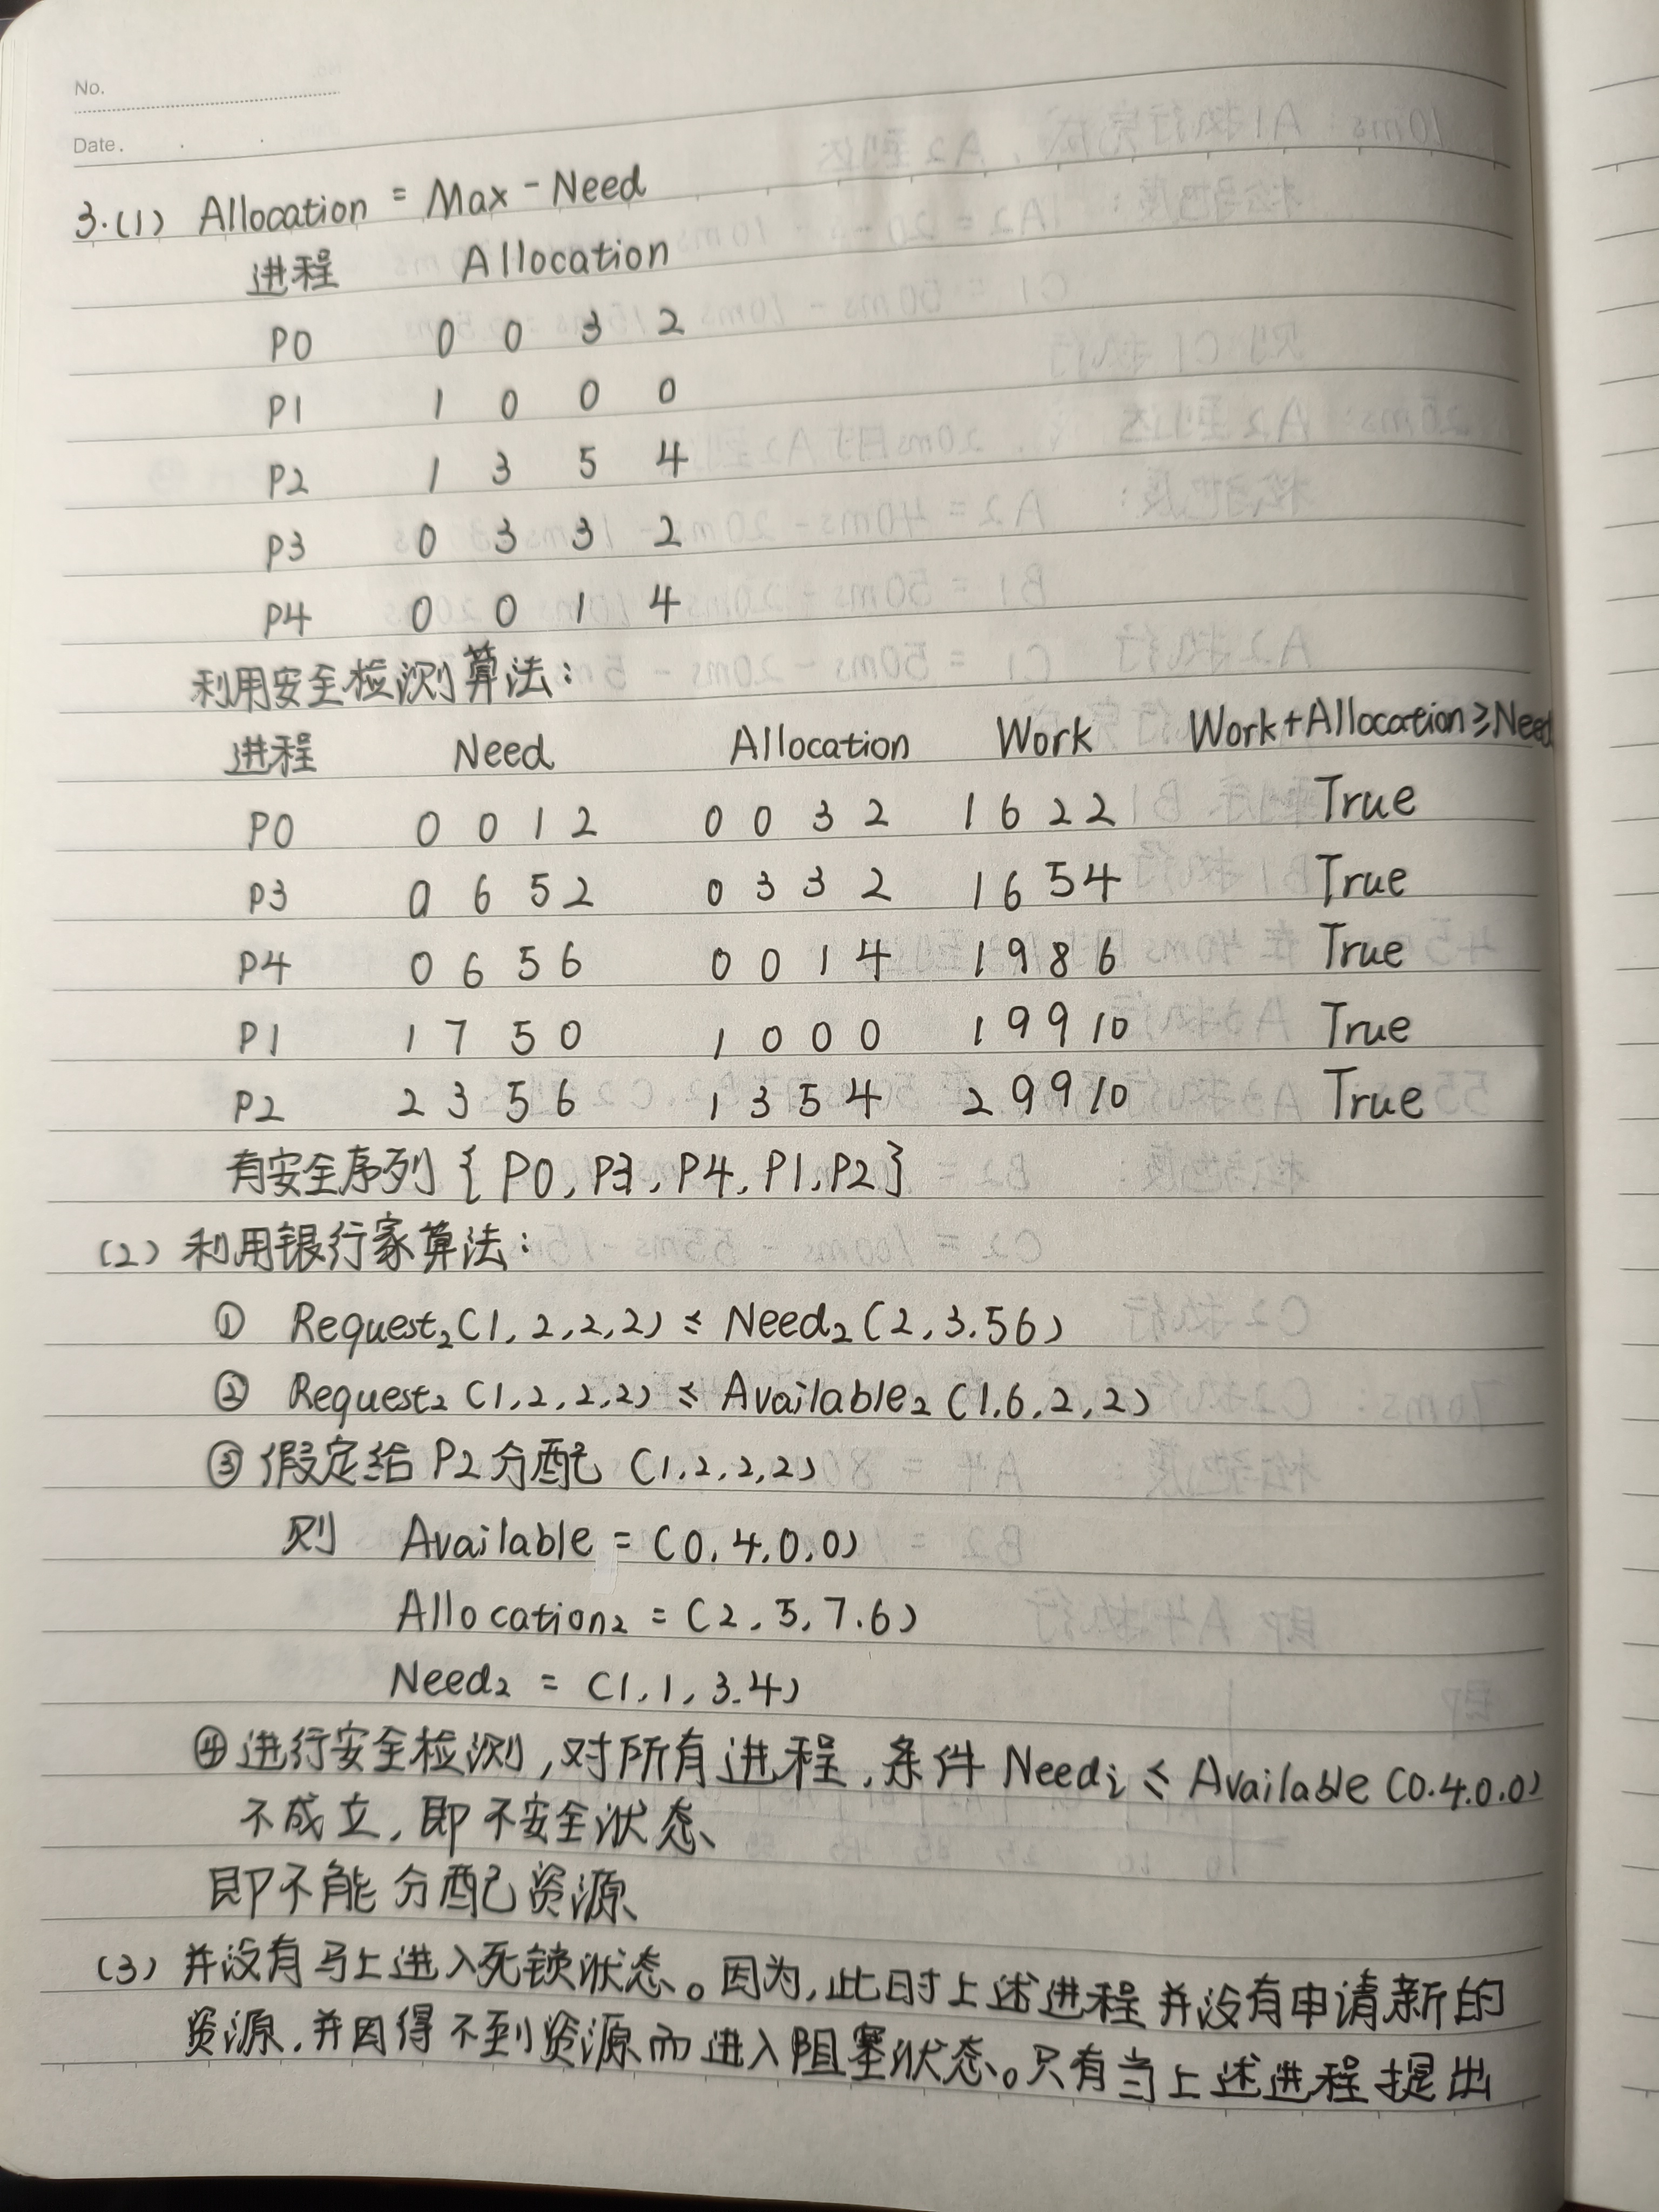 No.
Date.
3.(1) Allocation = Max - Need
进程 Allocation
P0 0 0 3 2
P1 1 0 0 0
P2 1 3 5 4
P3 0 3 3 2
P4 0 0 1 4
利用安全检测算法:
进程 Need Allocation Work Work+Allocation≥Need
P0 0 0 1 2 0 0 3 2 1 6 2 2 True
P3 0 6 5 2 0 3 3 2 1 6 5 4 True
P4 0 6 5 6 0 0 1 4 1 9 8 6 True
P1 1 7 5 0 1 0 0 0 1 9 9 10 True
P2 2 3 5 6 1 3 5 4 2 9 9 10 True
有安全序列 { P0, P3, P4, P1, P2 }
(2) 利用银行家算法:
① Request₂(1,2,2,2) ≤ Need₂(2,3.56)
② Request₂(1,2,2,2) ≤ Available₂(1,6,2,2)
③ 假定给 P2 分配 (1,2,2,2)
则 Available = (0,4,0,0)
Allocation₂ = (2,5,7.6)
Need₂ = (1,1,3.4)
④ 进行安全检测,对所有进程,条件 Needi ≤ Available (0.4.0.0)
不成立,即不安全状态
即不能分配资源
(3) 并没有马上进入死锁状态。因为,此时上述进程并没有申请新的
资源,并因得不到资源而进入阻塞状态。只有当上述进程提出